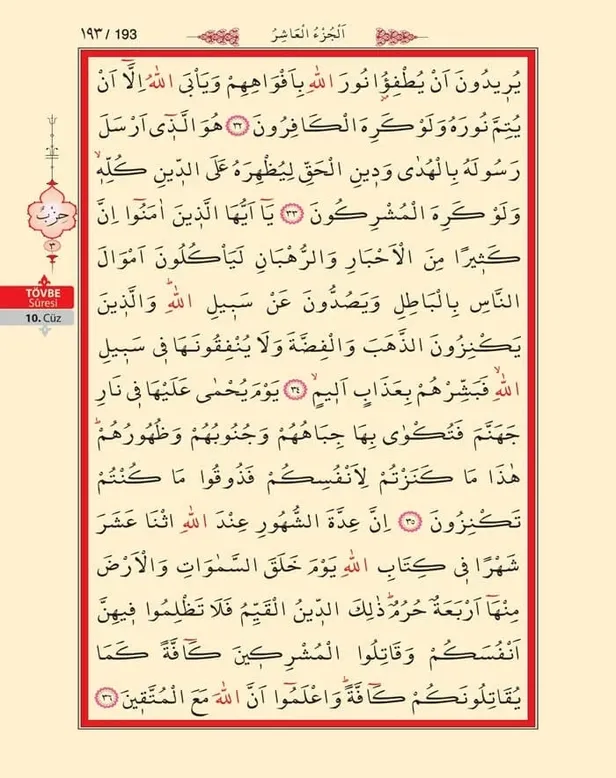 ١٩٣ / 193
اَلْجُزْءُ الْعَاشِرُ
يُرٖيدُونَ اَنْ يُطْفِؤُ۫ا نُورَ اللّٰهِ بِاَفْوَاهِهِمْ وَيَأْبَى اللّٰهُ اِلَّٓا اَنْ
يُتِمَّ نُورَهُ وَلَوْ كَرِهَ الْكَافِرُونَ ﴿٣٢﴾ هُوَ الَّذٖٓى اَرْسَلَ
رَسُولَهُ بِالْهُدٰى وَدٖينِ الْحَقِّ لِيُظْهِرَهُ عَلَى الدّٖينِ كُلِّهٖۙ
وَلَوْ كَرِهَ الْمُشْرِكُونَ ﴿٣٣﴾ يَٓا اَيُّهَا الَّذٖينَ اٰمَنُٓوا اِنَّ
كَثٖيرًا مِنَ الْاَحْبَارِ وَالرُّهْبَانِ لَيَأْكُلُونَ اَمْوَالَ
النَّاسِ بِالْبَاطِلِ وَيَصُدُّونَ عَنْ سَبٖيلِ اللّٰهِؕ وَالَّذٖينَ
يَكْنِزُونَ الذَّهَبَ وَالْفِضَّةَ وَلَا يُنْفِقُونَهَا فٖى سَبٖيلِ
اللّٰهِۙ فَبَشِّرْهُمْ بِعَذَابٍ اَلٖيمٍۙ ﴿٣٤﴾ يَوْمَ يُحْمٰى عَلَيْهَا فٖى نَارِ
جَهَنَّمَ فَتُكْوٰى بِهَا جِبَاهُهُمْ وَجُنُوبُهُمْ وَظُهُورُهُمْؕ
هٰذَا مَا كَنَزْتُمْ لِاَنْفُسِكُمْ فَذُوقُوا مَا كُنْتُمْ
تَكْنِزُونَ ﴿٣٥﴾ اِنَّ عِدَّةَ الشُّهُورِ عِنْدَ اللّٰهِ اثْنَا عَشَرَ
شَهْرًا فٖى كِتَابِ اللّٰهِ يَوْمَ خَلَقَ السَّمٰوَاتِ وَالْاَرْضَ
مِنْهَٓا اَرْبَعَةٌ حُرُمٌؕ ذٰلِكَ الدّٖينُ الْقَيِّمُ فَلَا تَظْلِمُوا فٖيهِنَّ
اَنْفُسَكُمْ وَقَاتِلُوا الْمُشْرِكٖينَ كَٓافَّةً كَمَا
يُقَاتِلُونَكُمْ كَٓافَّةًؕ وَاعْلَمُٓوا اَنَّ اللّٰهَ مَعَ الْمُتَّقٖينَ ﴿٣٦﴾
حِزْبٌ
٣
TÖVBE
Sûresi
10. Cüz